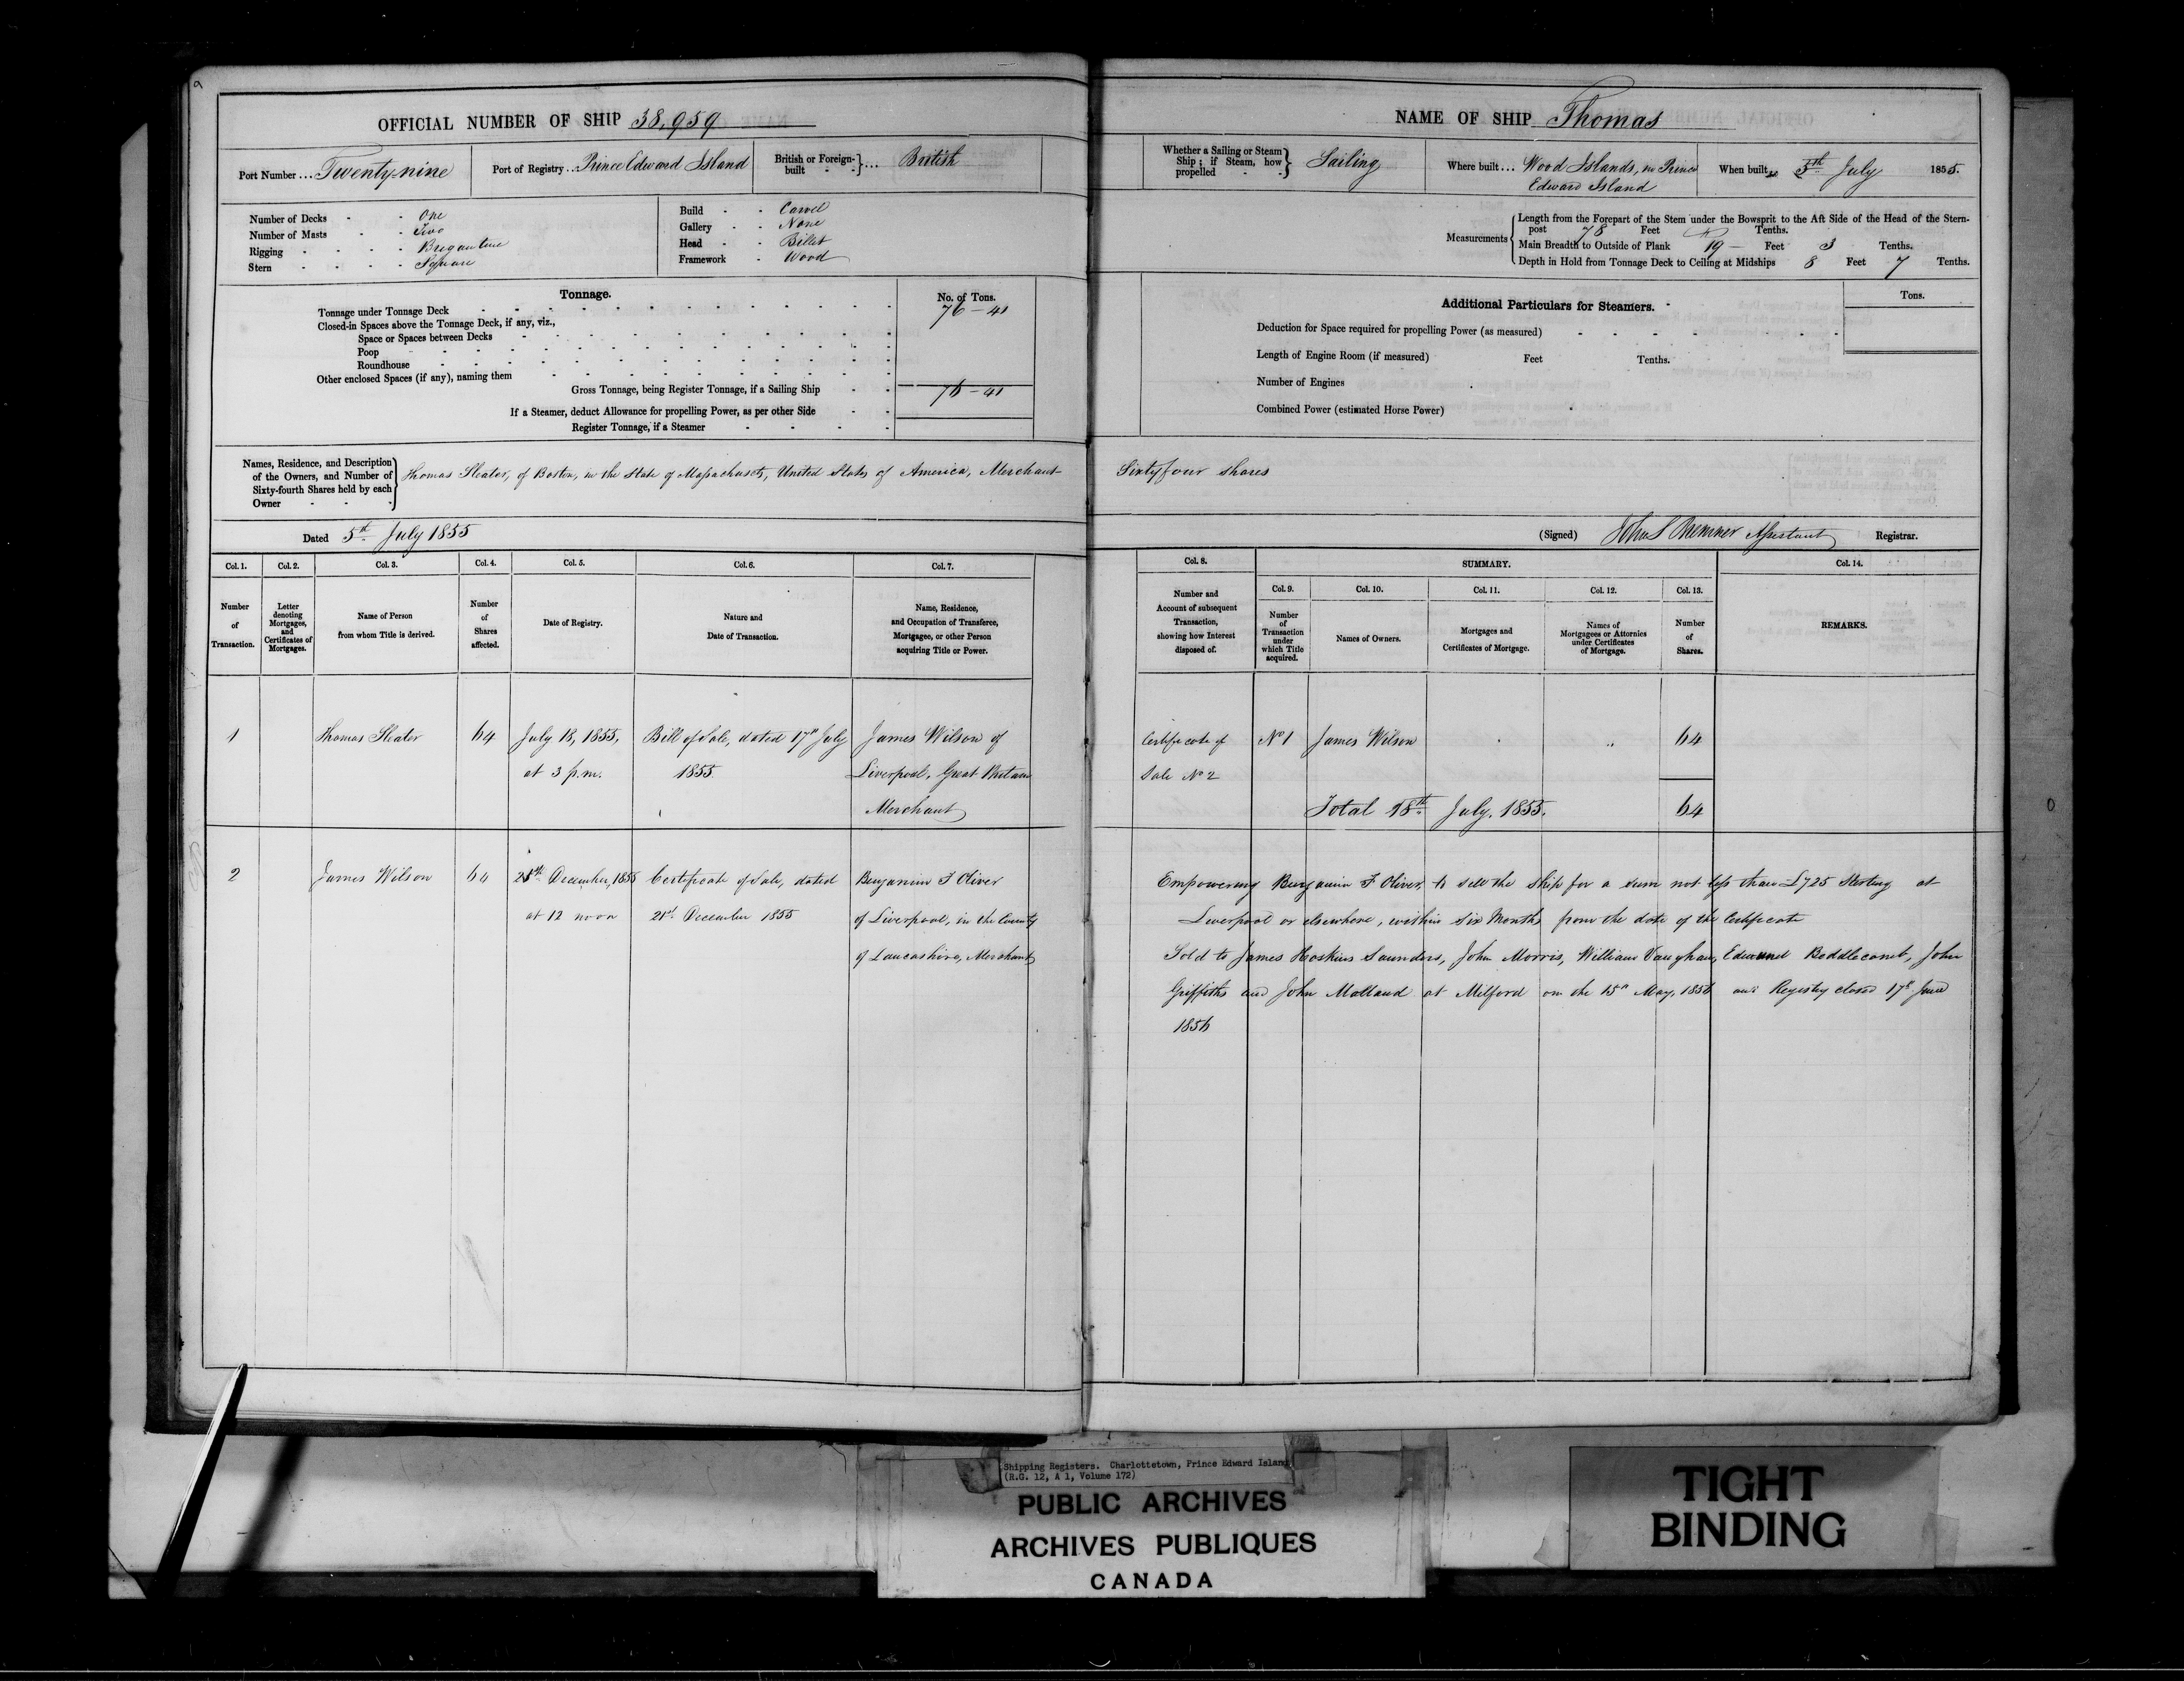 OFFICIAL NUMBER OF SHIP 38,959
Port Number... Twenty-nine
Port of Registry... Prince Edward Island
British or Foreign-built ... British
Number of Decks - - One
Number of Masts - - Two
Rigging - - - Brigantine
Stern - - - Square
Build - - Carvel
Gallery - - None
Head - - Billet
Framework - Wood
Tonnage.
No. of Tons.
Tonnage under Tonnage Deck 76-41
Closed-in Spaces above the Tonnage Deck, if any, viz.,
Space or Spaces between Decks
Poop
Roundhouse
Other enclosed Spaces (if any), naming them
Gross Tonnage, being Register Tonnage, if a Sailing Ship 76-41
If a Steamer, deduct Allowance for propelling Power, as per other Side
Register Tonnage, if a Steamer
Names, Residence, and Description
of the Owners, and Number of
Sixty-fourth Shares held by each
Owner
Thomas Sleator, of Boston, in the State of Massachusets, United States of America, Merchant
Dated 5th July 1855
Col. 1. Col. 2. Col. 3. Col. 4. Col. 5. Col. 6. Col. 7.
Number of Transaction.
Letter denoting Mortgages, and Certificates of Mortgages.
Name of Person from whom Title is derived.
Number of Shares affected.
Date of Registry.
Nature and Date of Transaction.
Name, Residence, and Occupation of Transferee, Mortgagee, or other Person acquiring Title or Power.
1 Thomas Sleator 64 July 18, 1855, Bill of Sale, dated 17th July James Wilson of
at 3 p.m. 1855 Liverpool, Great Britain
Merchant
2 James Wilson 64 December, 1855 Certificate of Sale, dated Benjamin F Oliver
at 12 noon 21st December 1855 of Liverpool, in the County
of Lancashire, Merchant
NAME OF SHIP Thomas
Whether a Sailing or Steam Ship; if Steam, how propelled Sailing
Where built... Wood Islands, in Prince
Edward Island
When built 5th July 1855.
Measurements
Length from the Forepart of the Stem under the Bowsprit to the Aft Side of the Head of the Stern-
post 78 Feet Tenths.
Main Breadth to Outside of Plank 19 - Feet 3 Tenths.
Depth in Hold from Tonnage Deck to Ceiling at Midships 8 Feet 7 Tenths.
Additional Particulars for Steamers.
Tons.
Deduction for Space required for propelling Power (as measured)
Length of Engine Room (if measured) Feet Tenths.
Number of Engines
Combined Power (estimated Horse Power)
Sixty four shares
(Signed) John S Bremner Assistant Registrar.
Col. 8. SUMMARY. Col. 14.
Col. 9. Col. 10. Col. 11. Col. 12. Col. 13.
Number and Account of subsequent Transaction, showing how Interest disposed of.
Number of Transaction under which Title acquired.
Names of Owners.
Mortgages and Certificates of Mortgage.
Names of Mortgagees or Attornies under Certificates of Mortgage.
Number of Shares.
REMARKS.
Certificate of No 1 James Wilson 64
Sale No 2
Total 18th July, 1855. 64
Empowering Benjamin F Oliver, to sell the Ship for a sum not less than £725 Sterling at
Liverpool or elsewhere, within six Months from the date of the Certificate
Sold to James Hoskins Saunders, John Morris, William Vaughan, Edmund Beddlecomb, John
Griffiths and John Molland at Milford on the 15th May, 1856 and Registry closed 17th June
1856
Shipping Registers. Charlottetown, Prince Edward Island
(R.G. 12, A 1, Volume 172)
PUBLIC ARCHIVES
ARCHIVES PUBLIQUES
CANADA
TIGHT
BINDING